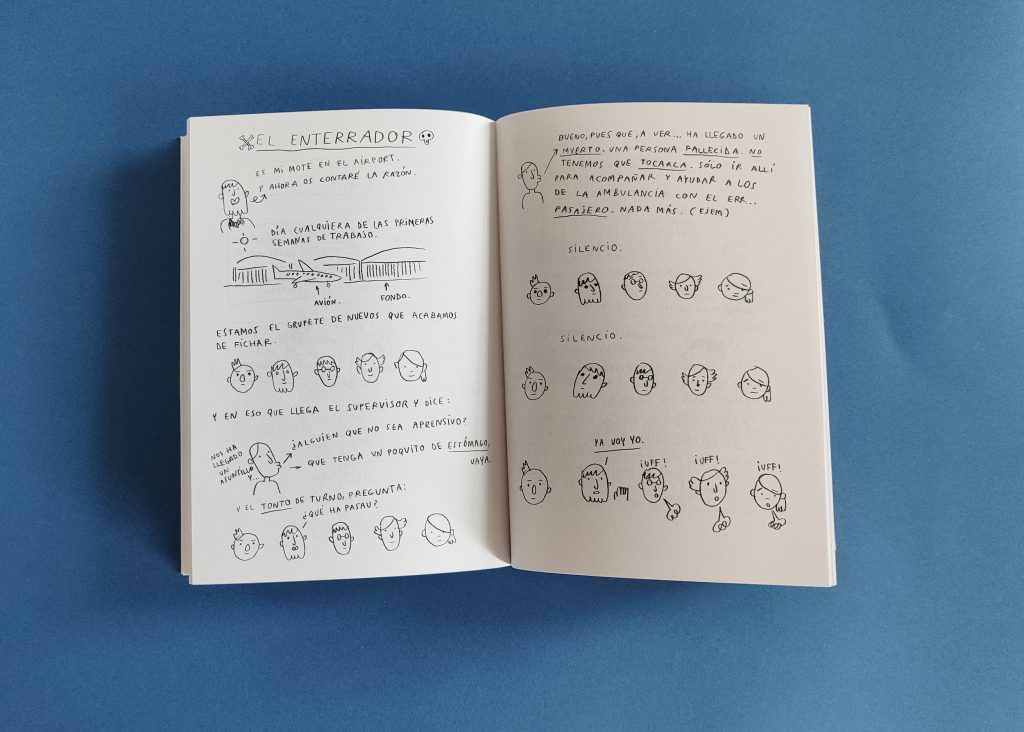 EL ENTERRADOR
ES MI MOTE EN EL AIRPORT.
Y AHORA OS CONTARÉ LA RAZÓN.
DÍA CUALQUIERA DE LAS PRIMERAS
SEMANAS DE TRABAJO.
AVIÓN.
FONDO.
ESTAMOS EL GRUPETE DE NUEVOS QUE ACABAMOS
DE FICHAR.
Y EN ESO QUE LLEGA EL SUPERVISOR Y DICE:
NOS HA
LLEGADO
UN
ASUNTILLO
Y...
¿ALGUIEN QUE NO SEA APRENSIVO?
QUE TENGA UN POQUITO DE ESTÓMAGO,
VAYA.
Y EL TONTO DE TURNO, PREGUNTA:
¿QUÉ HA PASAU?
BUENO, PUES QUE, A VER... HA LLEGADO UN
MUERTO. UNA PERSONA FALLECIDA. NO
TENEMOS QUE TOCARLA. SÓLO IR ALLÍ
PARA ACOMPAÑAR Y AYUDAR A LOS
DE LA AMBULANCIA CON EL ERR...
PASAJERO. NADA MÁS. (EJEM)
SILENCIO.
SILENCIO.
YA VOY YO.
¡UFF!
¡UFF!
¡UFF!